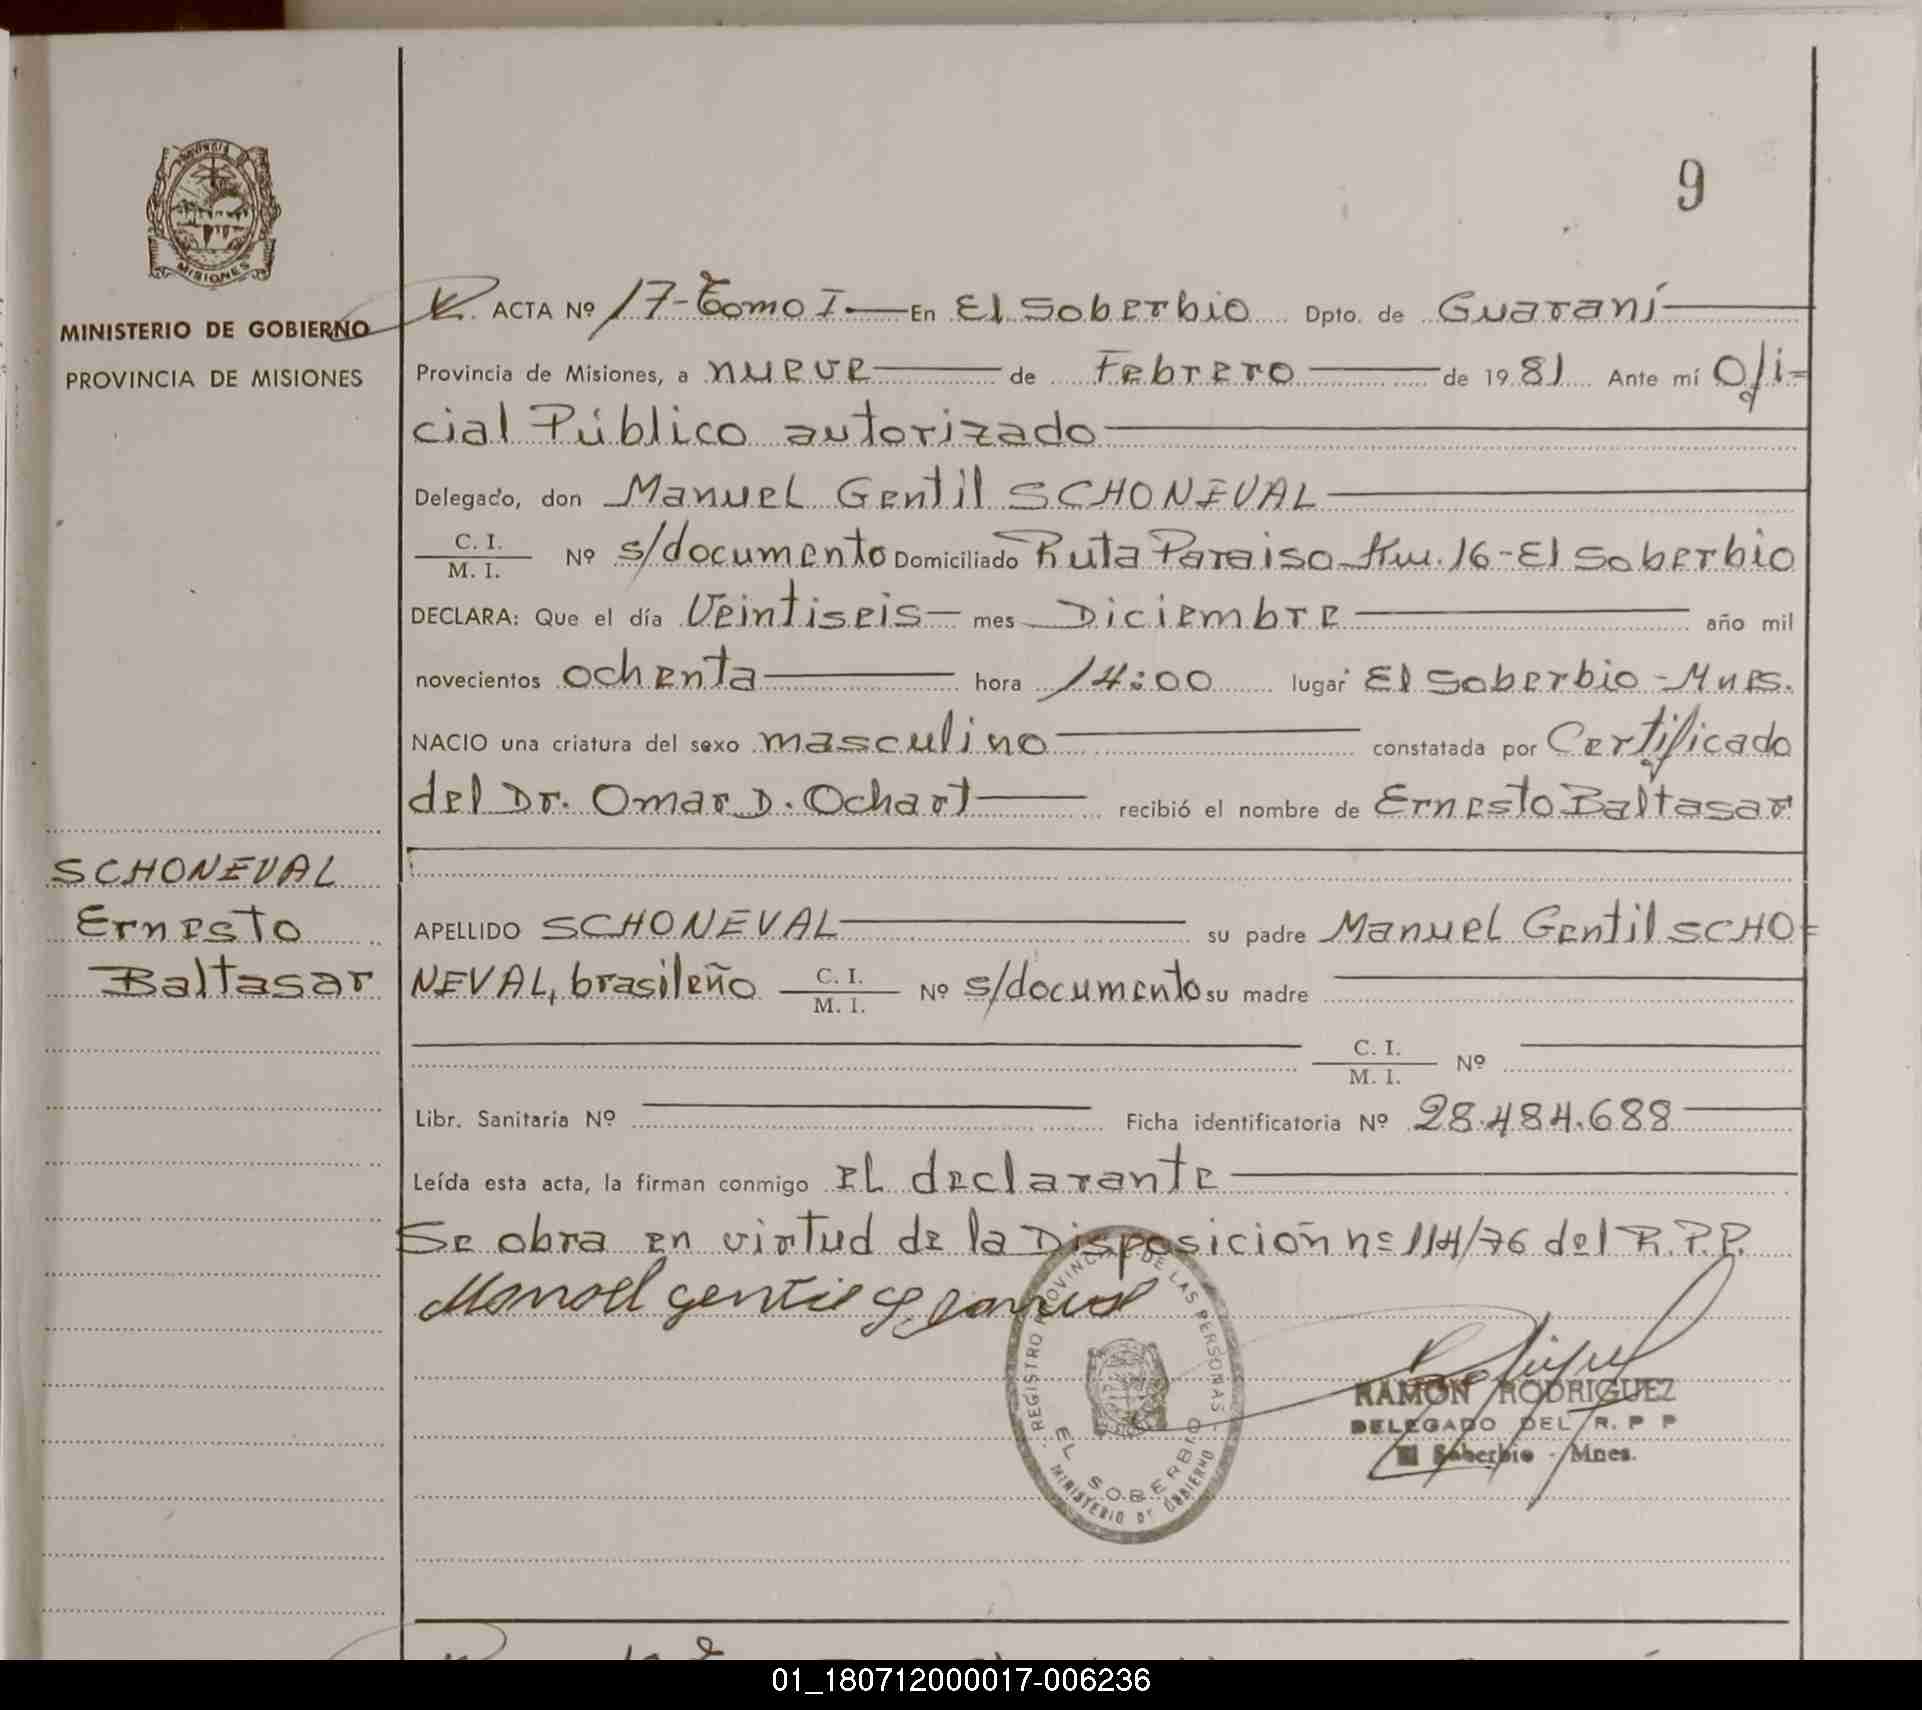 9
PROVINCIA DE
MISIONES
MINISTERIO DE GOBIERNO
PROVINCIA DE MISIONES
ACTA Nº 17-Tomo I. En El Soberbio Dpto. de Guaraní
Provincia de Misiones, a nueve de Febrero de 1981 Ante mí Ofi=
cial Público autorizado
Delegado, don Manuel Gentil SCHONEVAL
C. I.
M. I. Nº s/documento Domiciliado Ruta Paraiso Km. 16-El Soberbio
DECLARA: Que el día Veintiseis mes Diciembre año mil
novecientos ochenta hora 14:00 lugar El Soberbio-Mnes.
NACIO una criatura del sexo masculino constatada por Certificado
del Dr. Omar D. Ochart recibió el nombre de Ernesto Baltasar
SCHONEVAL
Ernesto
Baltasar
APELLIDO SCHONEVAL su padre Manuel Gentil SCHO=
NEVAL, brasileño C. I.
M. I. Nº s/documento su madre
C. I.
M. I. Nº
Libr. Sanitaria Nº Ficha identificatoria Nº 28.484.688
Leída esta acta, la firman conmigo el declarante
Se obra en virtud de la Disposición nº 114/76 del R.P.P.
Manoel gentil
REGISTRO PROVINCIAL DE LAS PERSONAS
EL SOBERBIO
MINISTERIO DE GOBIERNO
RAMON RODRIGUEZ
DELEGADO DEL R. P P
El Soberbio - Mnes.
01_180712000017-006236